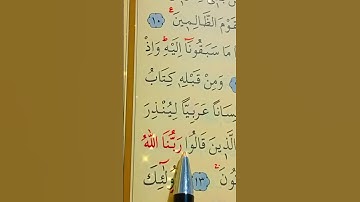 قَوْمَ الظَّالِمٖينَ ١٠
مَا سَبَقُونَٓا اِلَيْهِ وَاِذْ
وَمِنْ قَبْلِهٖ كِتَابُ
لِسَانًا عَرَبِيًّا لِيُنْذِرَ
الَّذٖينَ قَالُوا رَبُّنَا اللّٰهُ
١٣